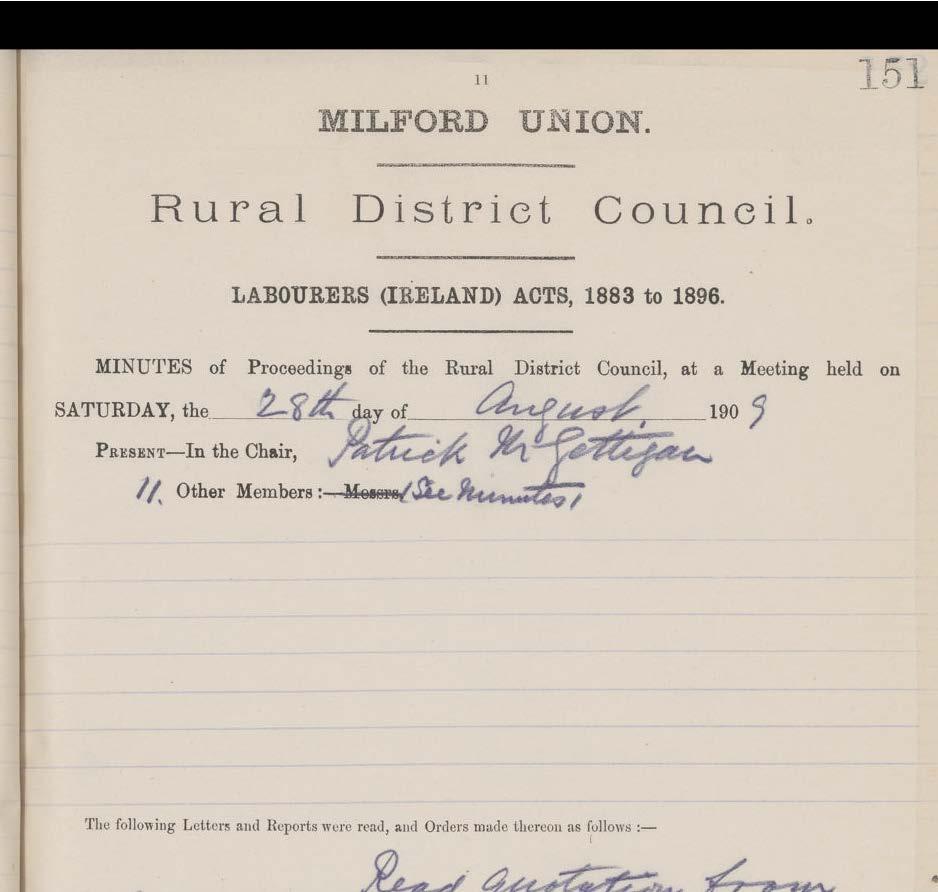 151
11
MILFORD UNION.
Rural District Council.
LABOURERS (IRELAND) ACTS, 1883 to 1896.
MINUTES of Proceedings of the Rural District Council, at a Meeting held on
SATURDAY, the 28th day of August, 1909
PRESENT—In the Chair, Patrick McGettigan
11. Other Members:—Messrs (See Minutes)
The following Letters and Reports were read, and Orders made thereon as follows:—
Read quotation from